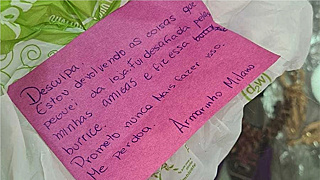 Desculpa
Estou devolvendo as coisas que
peguei da loja, fui desafiada pelas
minhas amigas e fiz essa
burrice.
Prometo nunca mais fazer isso.
Me perdoa
Armarinho Milano